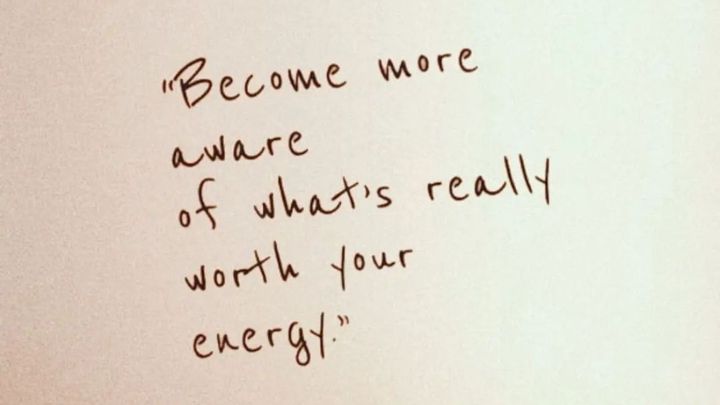 "Become more
aware
of what's really
worth your
energy."